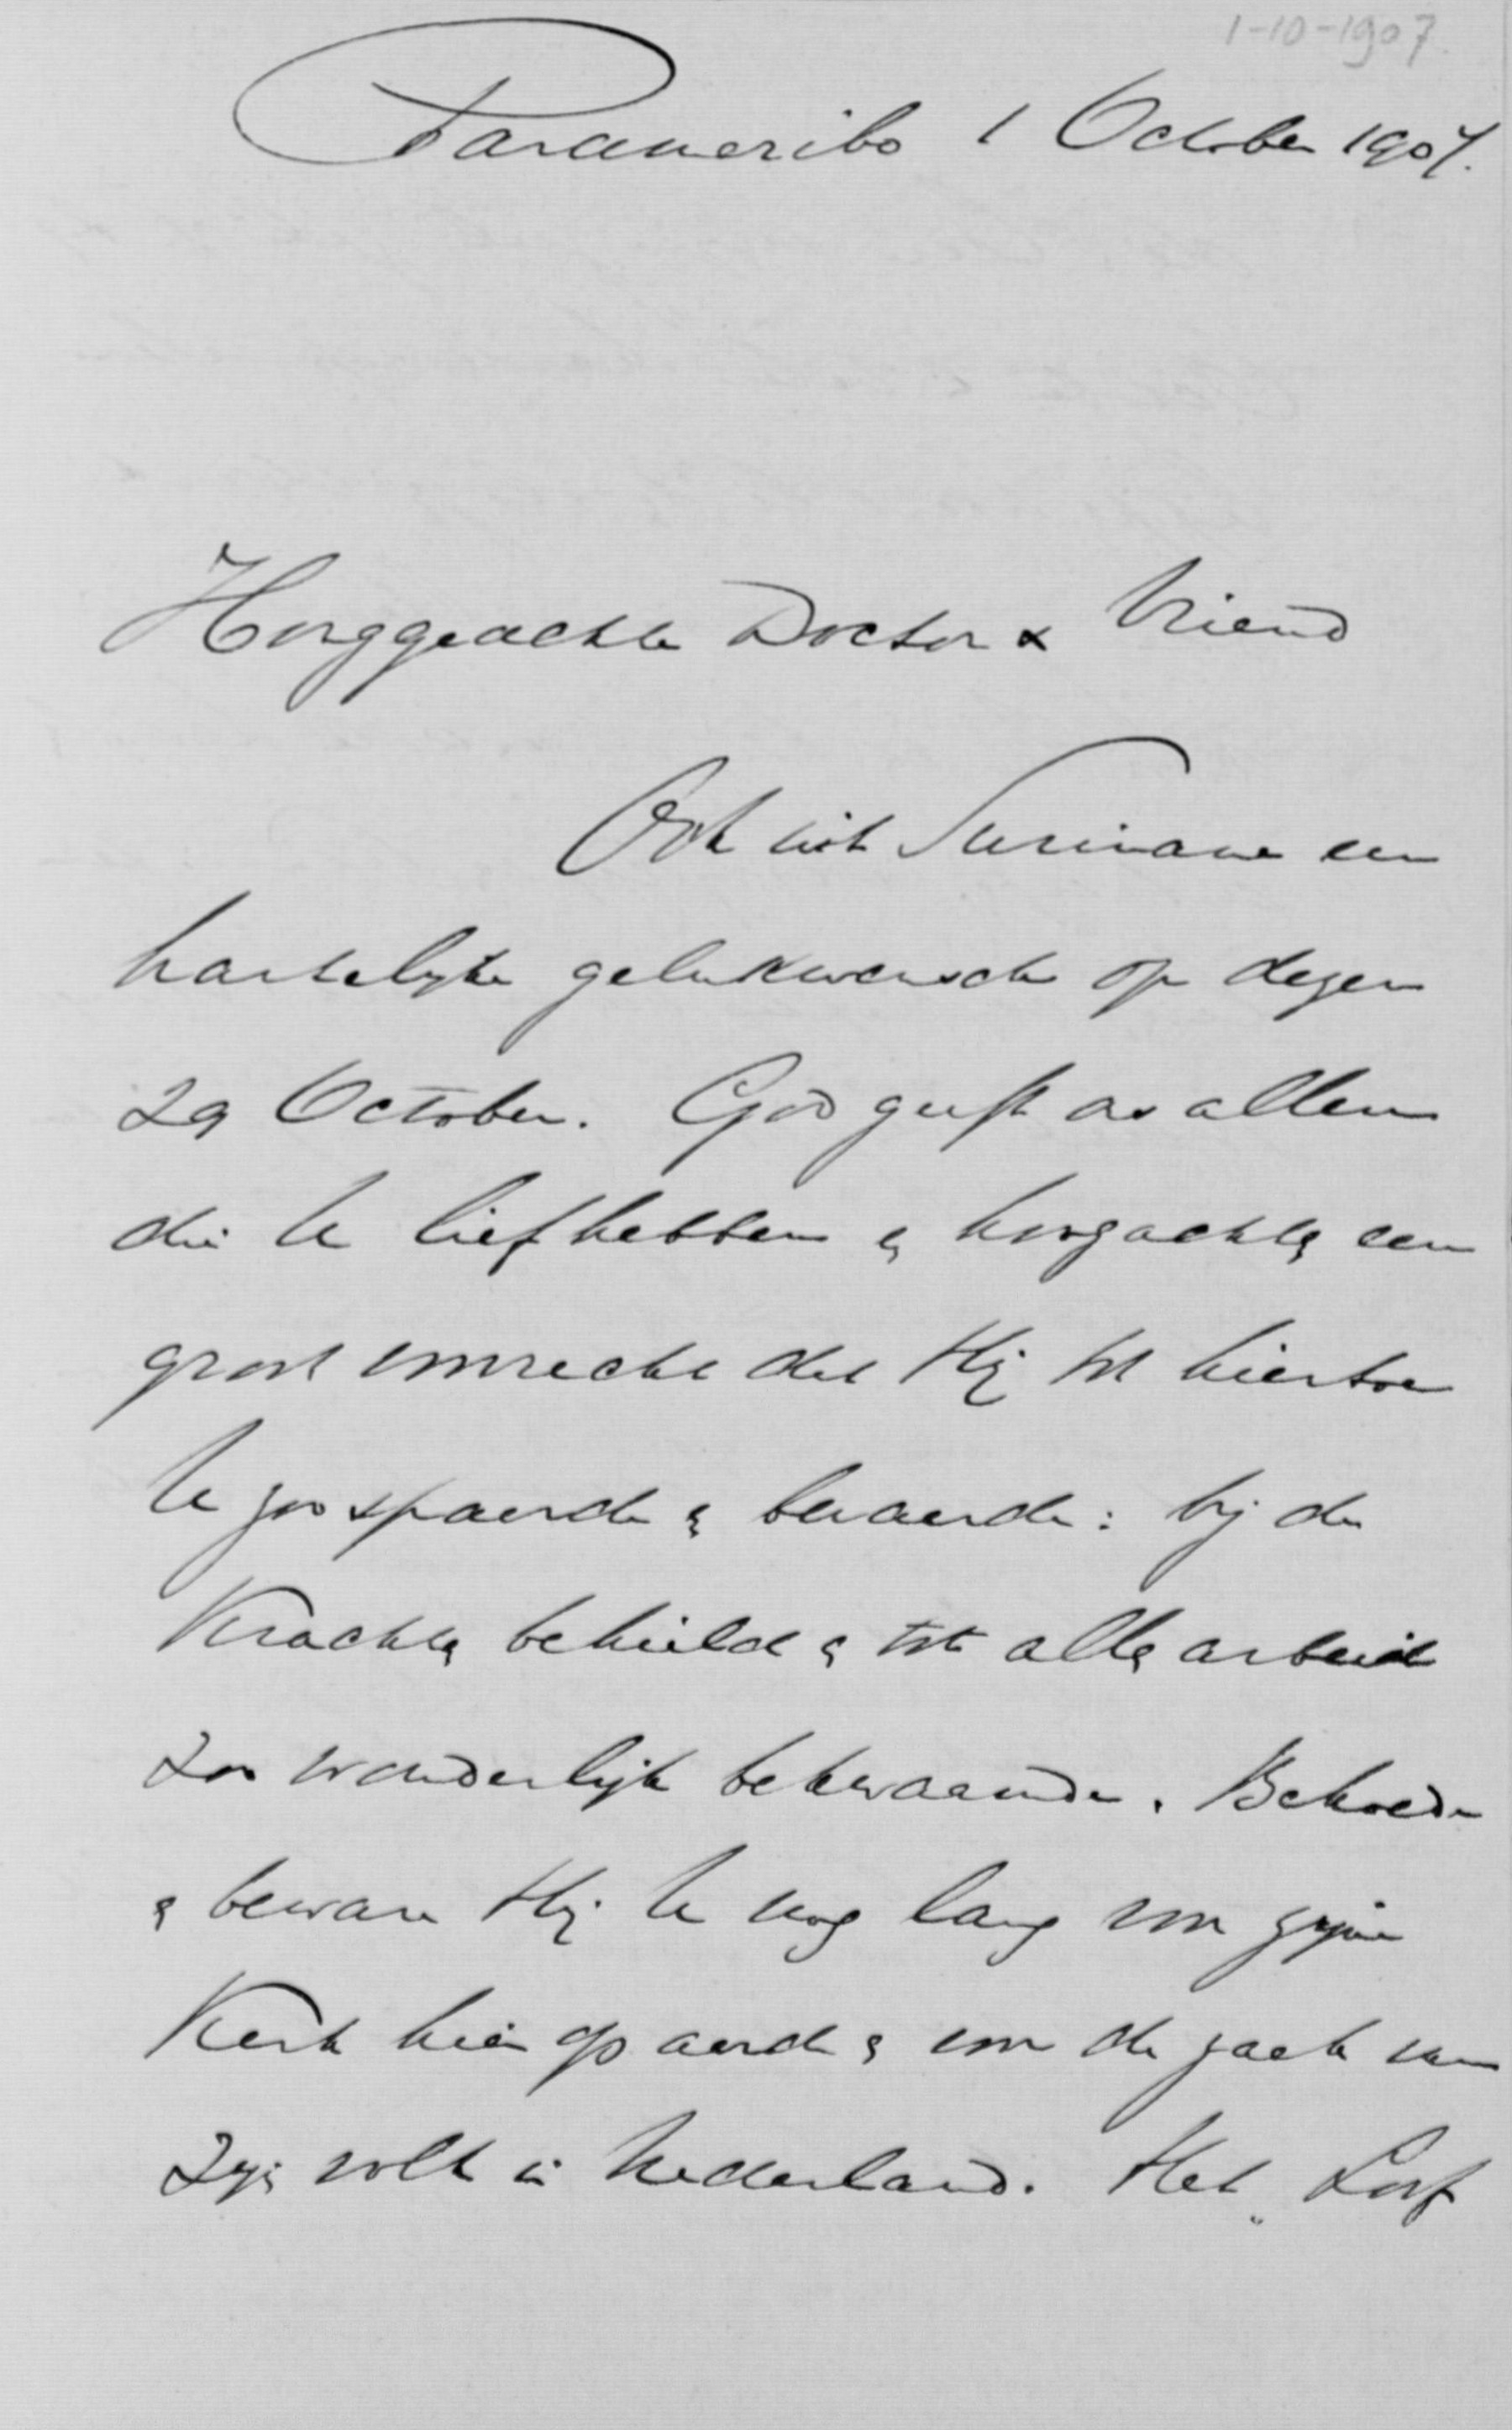 1-10-1907.
Paramaribo 1 October 1907.
Hooggeachte Doctor & Vriend
Ook uit Suriname een
hartelijke gelukwensch op dezen
29 October. God geeft aan allen
die U liefhebben en hoogachten een
groot voorrecht dat Hij tot hiertoe
U zoo spaarde en bewaarde: bij de
Krachten behield en tot allen arbeid
zoo wonderlijk bekwaamde. Behoede
en beware Hij U nog lang voor zijne
Kerk hier op aarde en voor de zaak van
zijn volk in Nederland. Het „Loof